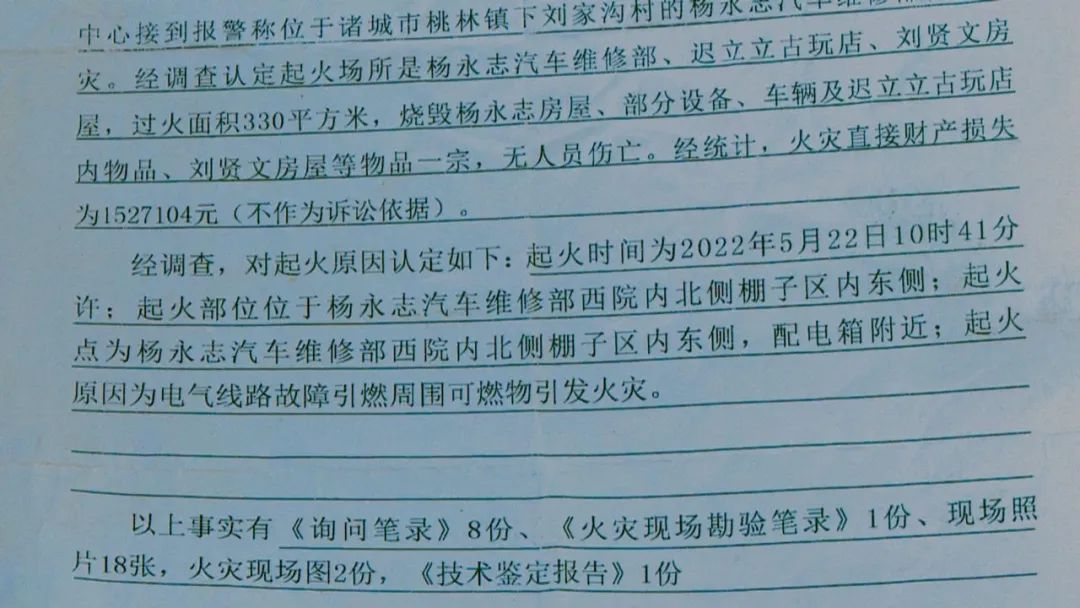 中心接到报警称位于诸城市桃林镇下刘家沟村的杨永志汽车维修部
灾。经调查认定起火场所是杨永志汽车维修部、迟立立古玩店、刘贤文房
屋，过火面积330平方米，烧毁杨永志房屋、部分设备、车辆及迟立立古玩店
内物品、刘贤文房屋等物品一宗，无人员伤亡。经统计，火灾直接财产损失
为1527104元（不作为诉讼依据）。
经调查，对起火原因认定如下：起火时间为2022年5月22日10时41分
许；起火部位位于杨永志汽车维修部西院内北侧棚子区内东侧；起火
点为杨永志汽车维修部西院内北侧棚子区内东侧，配电箱附近；起火
原因为电气线路故障引燃周围可燃物引发火灾。
以上事实有《询问笔录》8份、《火灾现场勘验笔录》1份、现场照
片18张，火灾现场图2份，《技术鉴定报告》1份